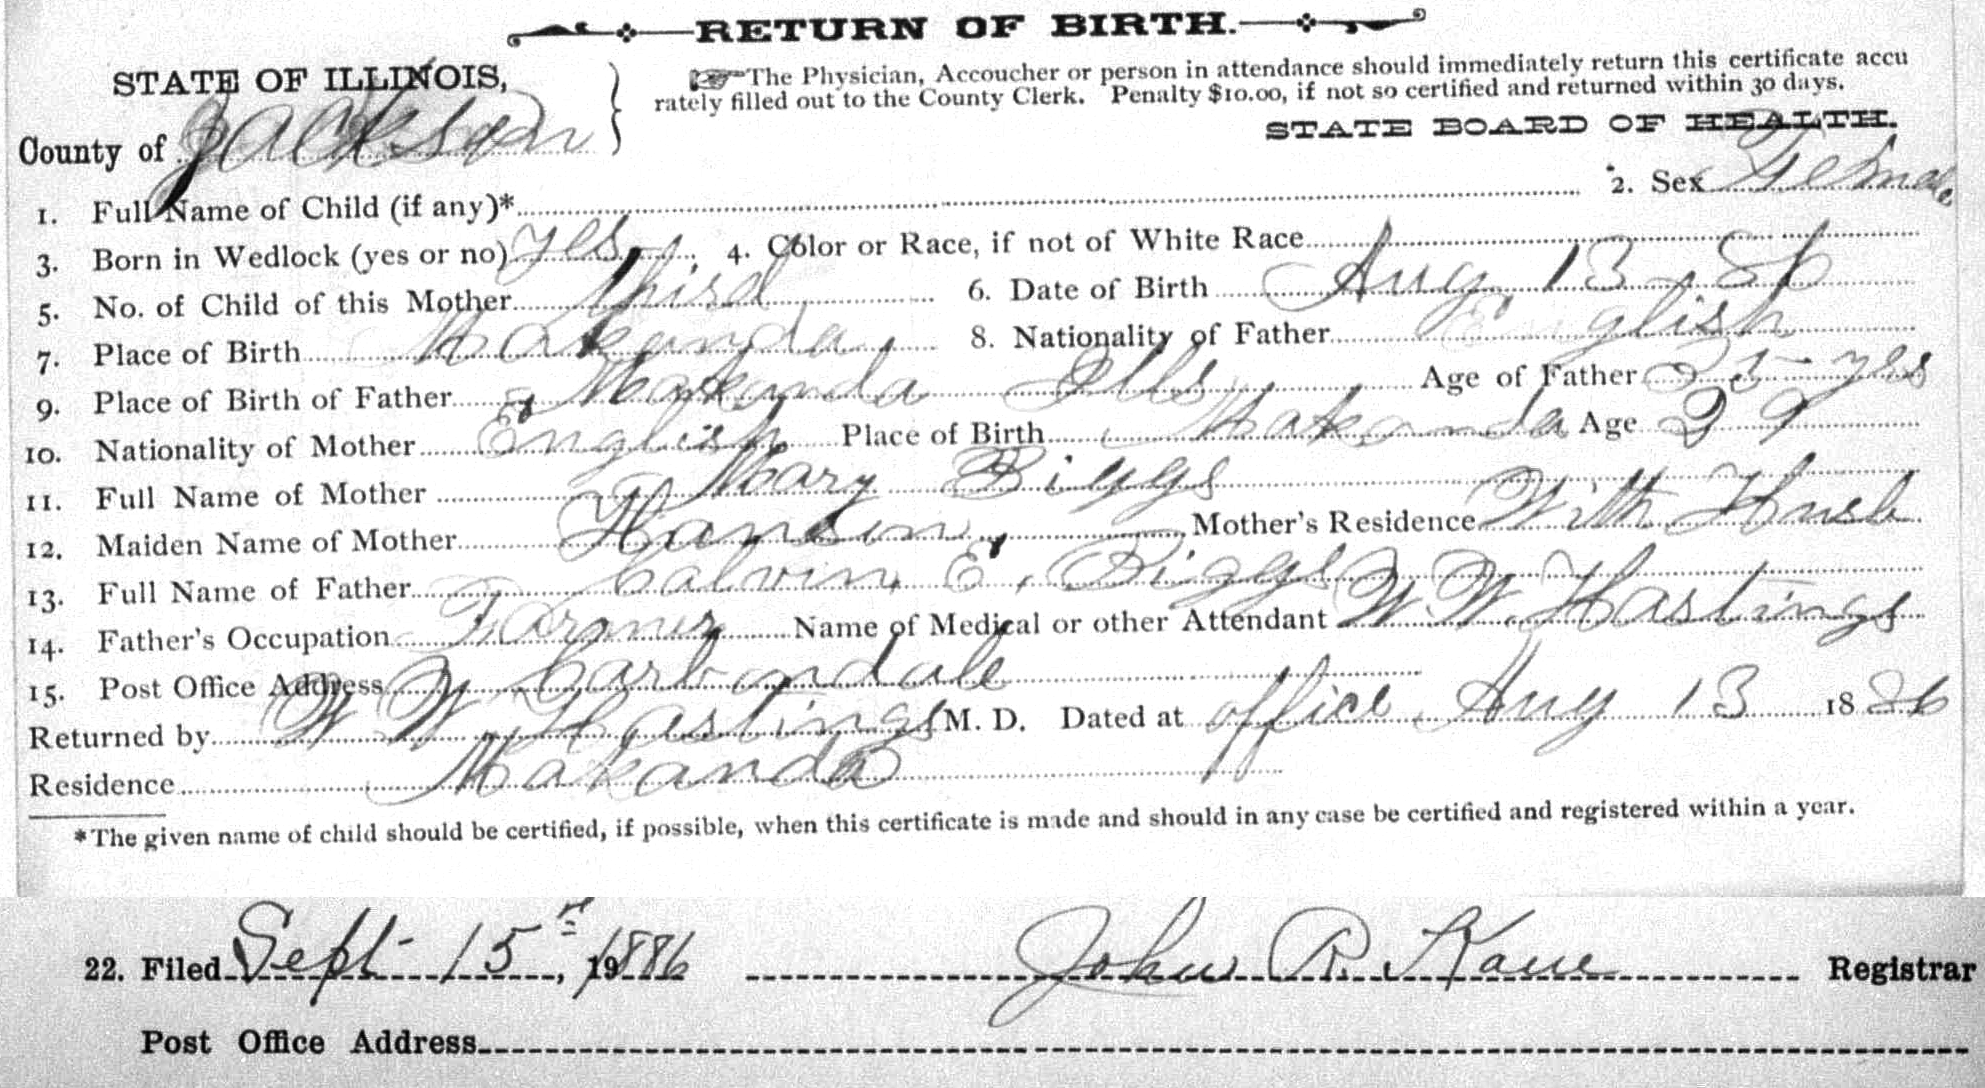 RETURN OF BIRTH.
STATE OF ILLINOIS,
The Physician, Accoucher or person in attendance should immediately return this certificate accu
rately filled out to the County Clerk. Penalty $10.00, if not so certified and returned within 30 days.
STATE BOARD OF HEALTH.
County of Jackson
1. Full Name of Child (if any)* 2. Sex Female
3. Born in Wedlock (yes or no) yes, 4. Color or Race, if not of White Race
5. No. of Child of this Mother third 6. Date of Birth Aug 13 86
7. Place of Birth Makanda 8. Nationality of Father English
9. Place of Birth of Father Makanda Ills Age of Father 35 yrs
10. Nationality of Mother English Place of Birth Makanda Age 29
11. Full Name of Mother Mary Biggs
12. Maiden Name of Mother Hanson Mother's Residence With Husb
13. Full Name of Father Calvin E. Biggs
14. Father's Occupation Farmer Name of Medical or other Attendant W W. Hastings
15. Post Office Address Carbondale
Returned by W W Hastings M. D. Dated at office Aug 13 1886
Residence Makanda
*The given name of child should be certified, if possible, when this certificate is made and should in any case be certified and registered within a year.
22. Filed Sept 15th, 191886 John R. Kane Registrar
Post Office Address